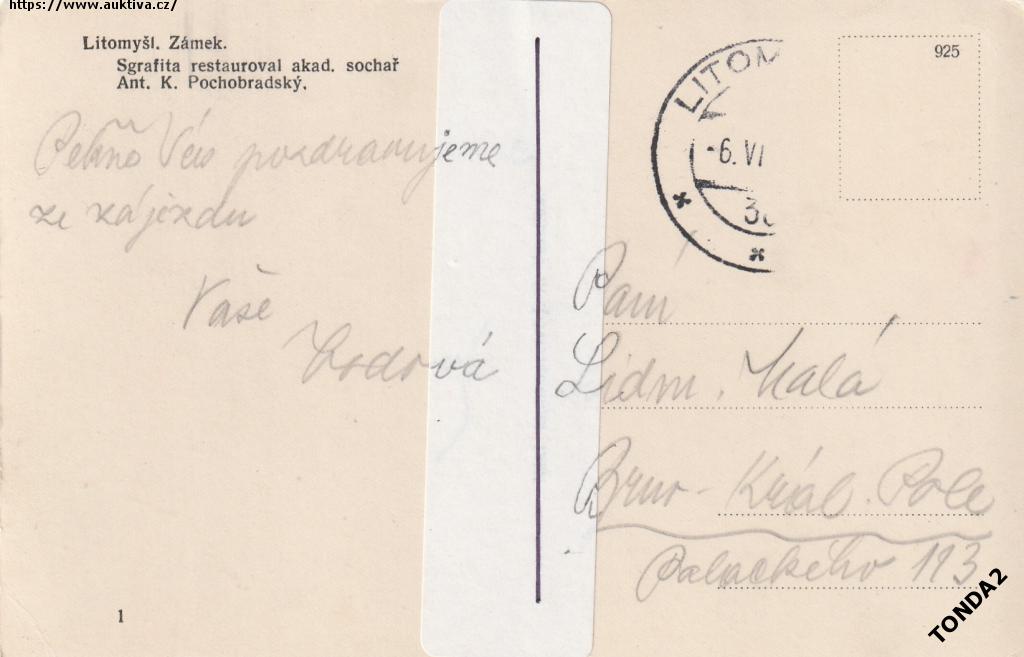 https://www.auktiva.cz/
Litomyšl. Zámek.
Sgrafita restauroval akad. sochař
Ant. K. Pochobradský.
Pěkně Vás pozdravujeme
ze zájezdu
Vaše
925
LITOM
-6. VI
Paní
Lidm. Malá
Brno - Král. Pole
Palackého 113
1
TONDA2